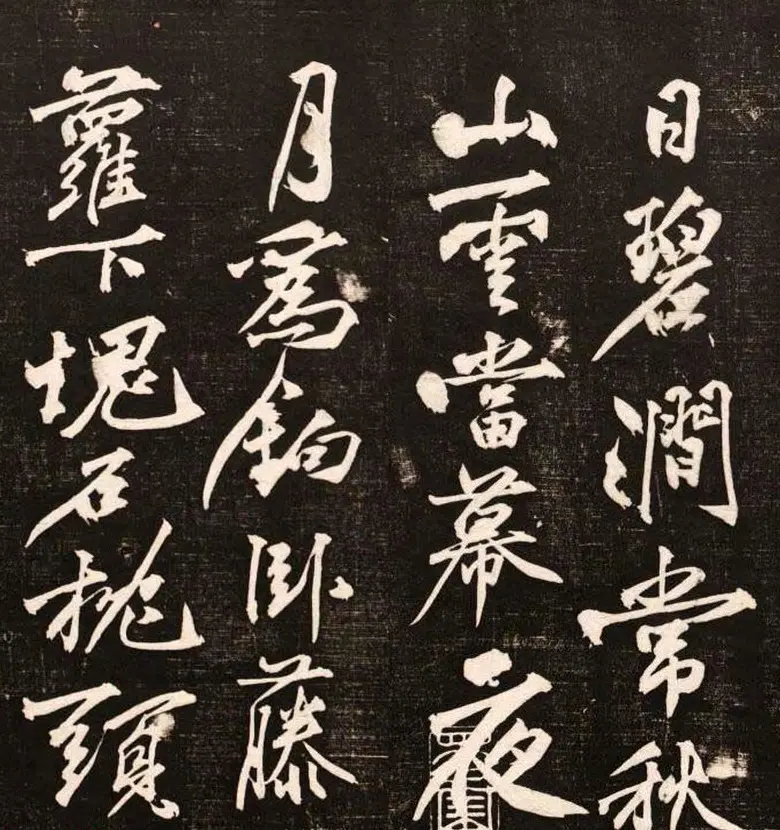 日碧澗常秋
山雲當幕夜
月為鉤卧藤
蘿下塊石枕頭